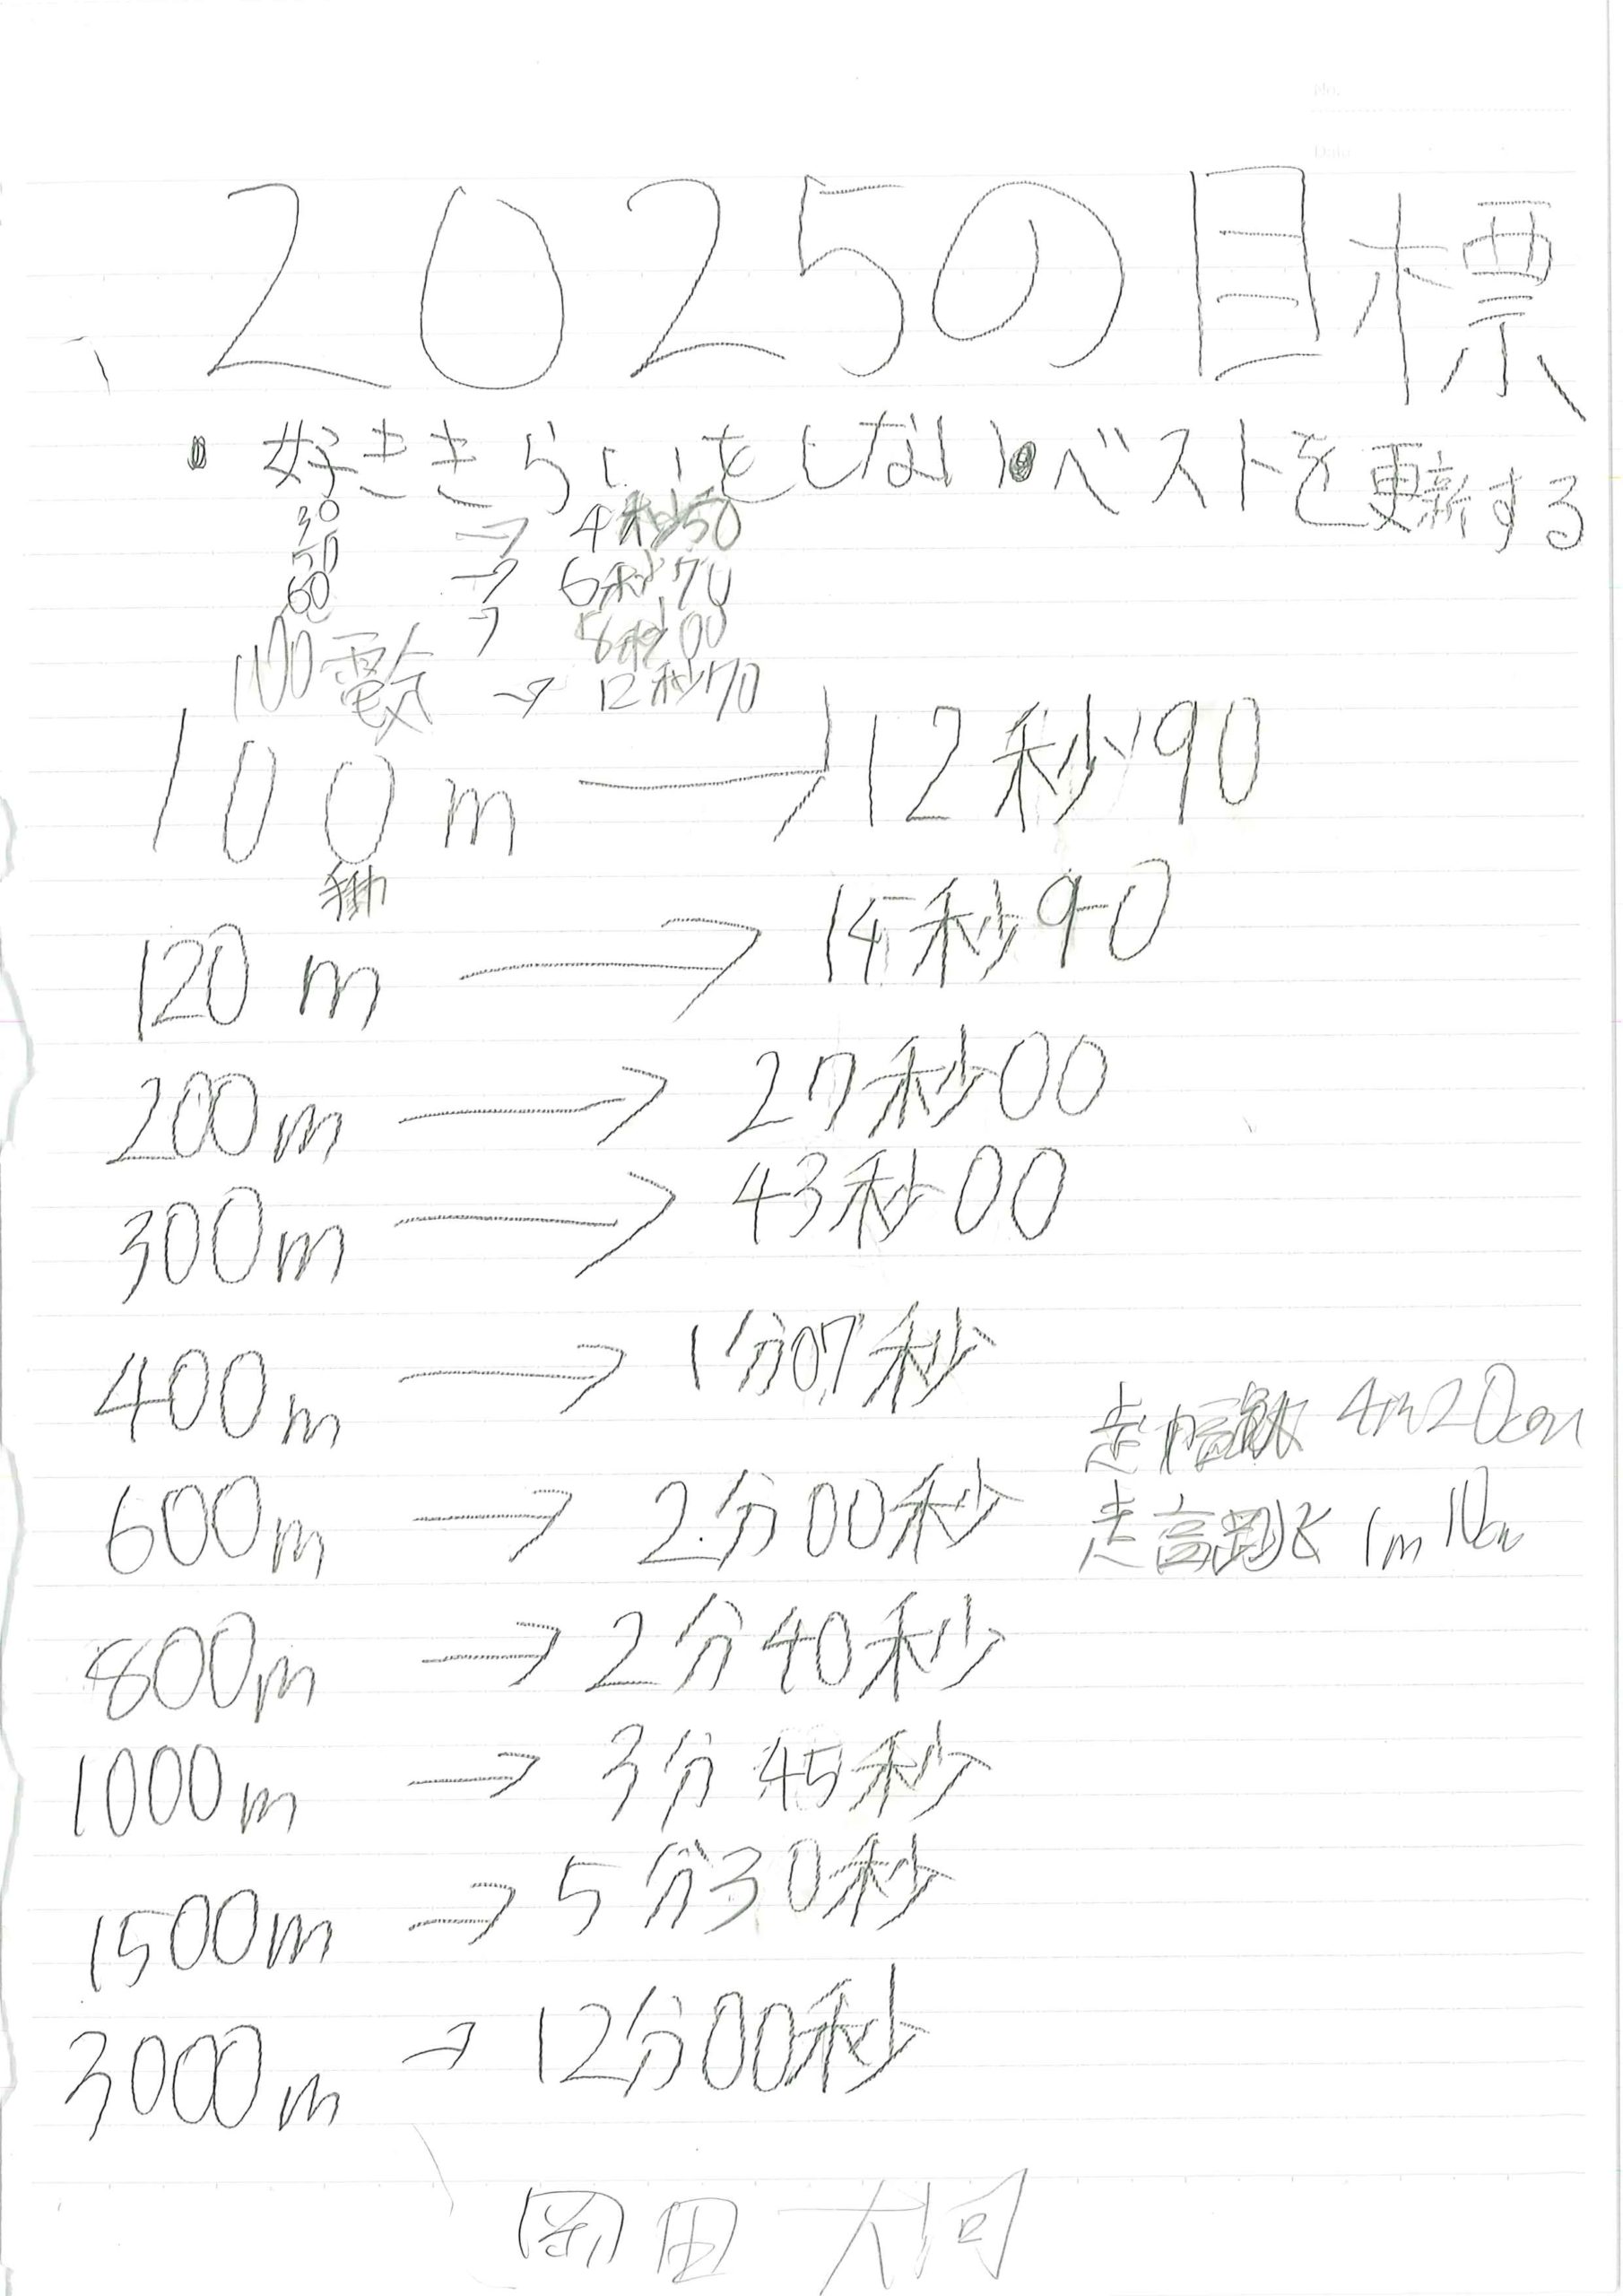 2025の目標
・好ききらいをしない・ベストを更新する
30 → 4秒50
50 → 6秒70
60 → 8秒00
100電気 → 12秒70
100m → 12秒90
120m → 14秒90
200m → 27秒00
300m → 43秒00
400m → 1分07秒
走幅跳 4m20cm
600m → 2分00秒
走高跳び 1m10cm
800m → 2分40秒
1000m → 3分45秒
1500m → 5分30秒
3000m → 12分00秒
岡田 大